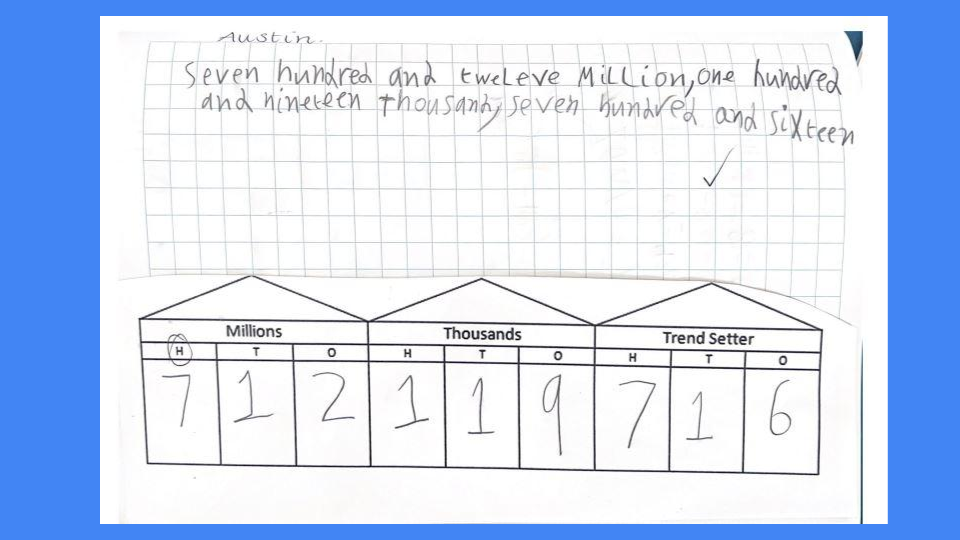 Austin.
Seven hundred and tweleve Million, one hundred
and nineteen thousand, seven hundred and sixteen
Millions Thousands Trend Setter
H T O H T O H T O
7 1 2 1 1 9 7 1 6